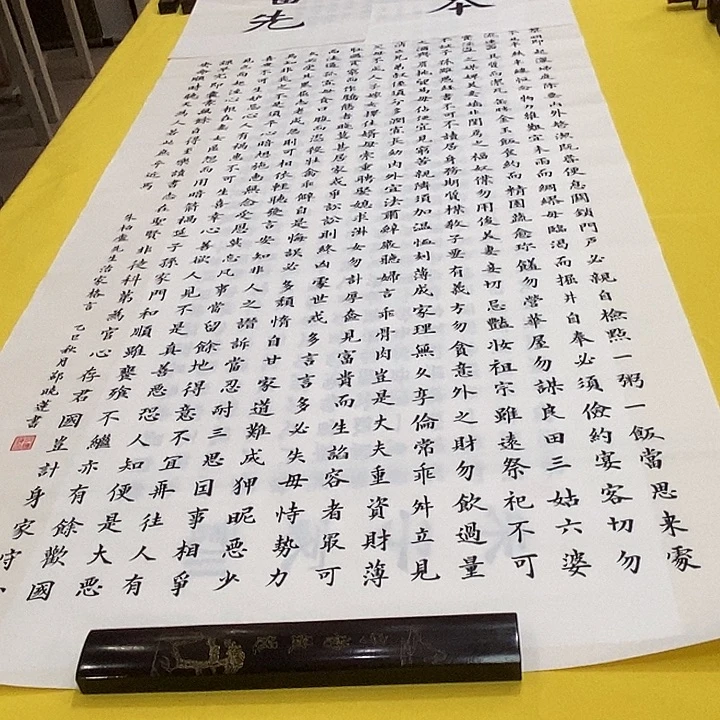 本
先
黎明即起灑掃庭除要内外整潔既昏便息關鎖門戶必親自檢點一粥一飯當思来處
不易半絲半縷恒念物力維艱宜未雨而綢繆毋臨渴而掘井自奉必須儉約宴客切勿
流連器具質而潔瓦缶勝金玉飲食約而精園蔬愈珍饈勿營華屋勿謀良田三姑六婆
實淫盗之媒婢美妾嬌非閨房之福奴僕勿用俊美妻妾切忌艷妝祖宗雖遠祭祀不可
不誠子孫雖愚經書不可不讀居身務期質樸教子要有義方勿貪意外之財勿飲過量
之酒與肩挑貿易毋佔便宜見窮苦親隣須加温恤刻薄成家理無久享倫常乖舛立見
消亡兄弟叔侄須分多潤寡長幼内外宜法肅辭嚴聽婦言乖骨肉豈是丈夫重資財薄
父母不成人子嫁女擇佳婿毋索重聘娶媳求淑女勿計厚奩見富貴而生諂容者最可
恥遇貧窮而作驕態者賤莫甚居家戒爭訟訟則終凶處世戒多言言多必失毋恃勢力
而凌逼孤寡毋貪口腹而恣殺牲禽乖僻自是悔誤必多頹惰自甘家道難成狎昵惡少
久必受其累屈志老成急則可相依輕聽發言安知非人之譖訴當忍耐三思因事相爭
焉知非我之不是須平心暗想施惠無念受恩莫忘凡事當留餘地得意不宜再往人有
喜慶不可生妒忌心人有禍患不可生喜幸心善欲人見不是真善惡恐人知便是大惡
見色而起淫心報在妻女匿怨而用暗箭禍延子孫家門和順雖饔飧不繼亦有餘歡國
課早完即囊橐無餘自得至樂讀書志在聖賢非徒科第為官心存君國豈計身家守
安命順時聽天為人若此庶乎近焉
朱柏廬先生治家格言 乙巳秋月鄒曉蓮書